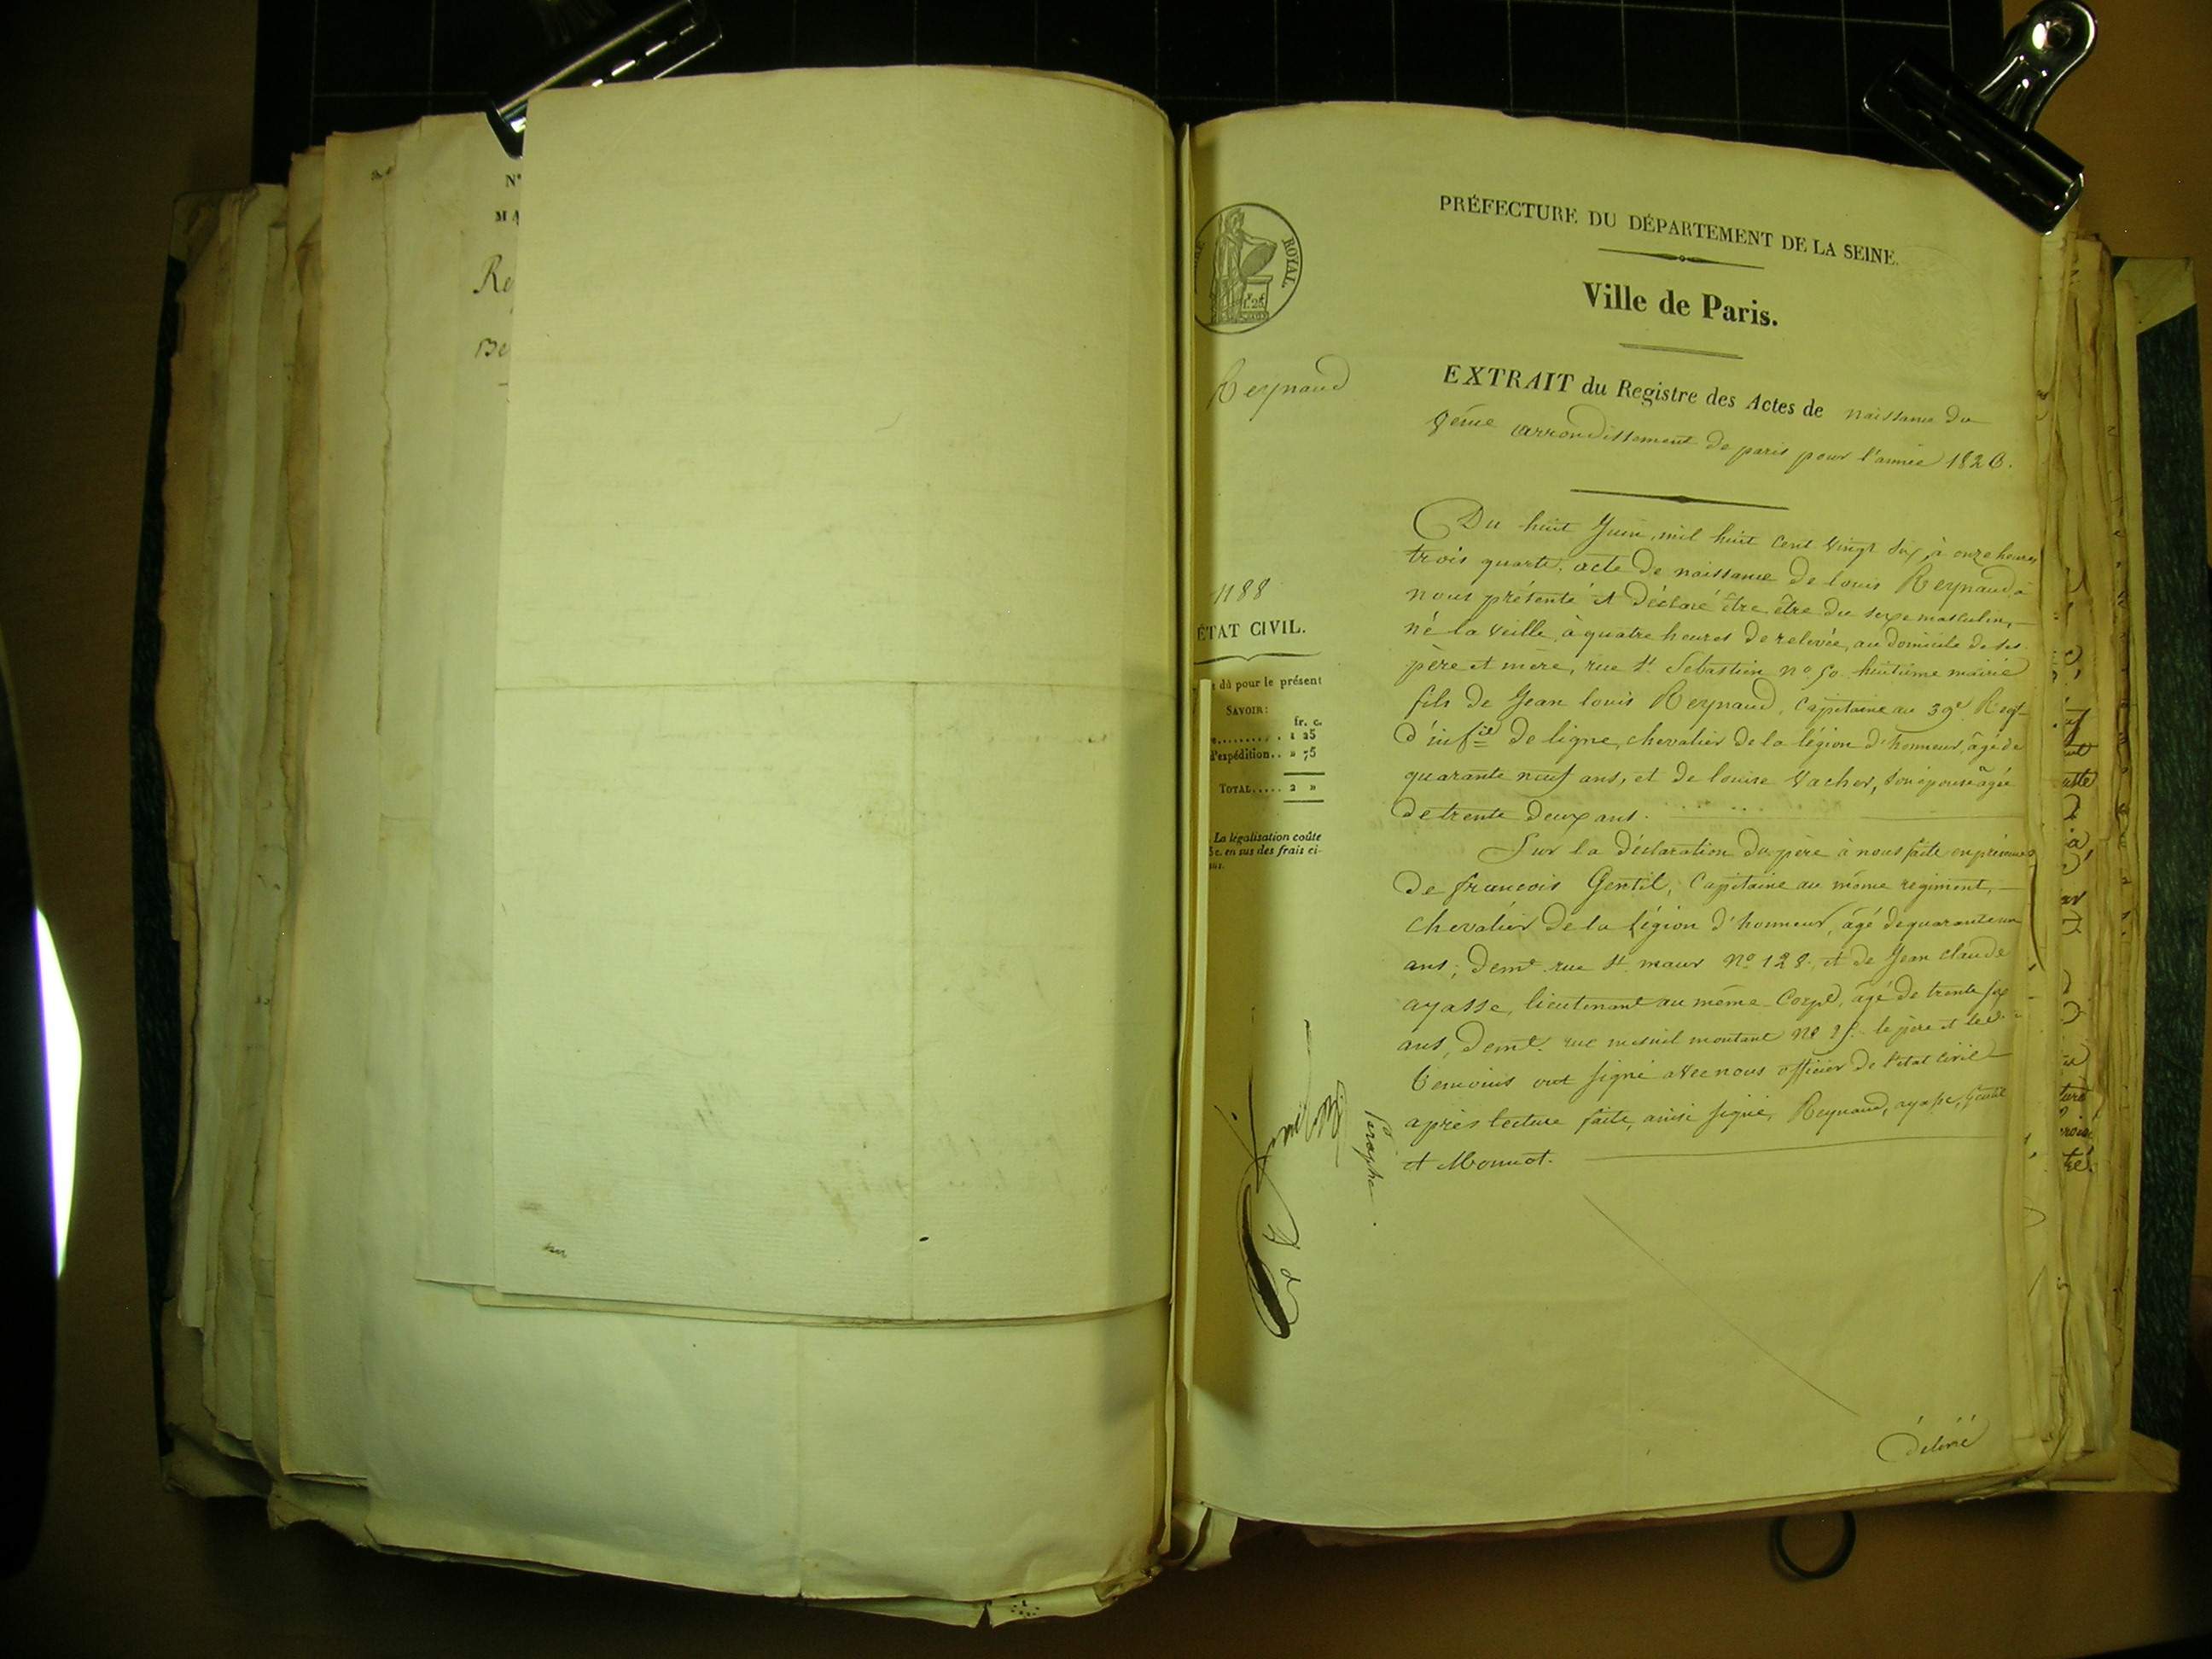 N°
MA
Re
Be
ROYAL.
PRÉFECTURE DU DÉPARTEMENT DE LA SEINE.
Ville de Paris.
Reynaud
EXTRAIT du Registre des Actes de naissance du
8éme arrondissement de paris pour l'année 1826.
Du huit Juin, mil huit cent vingt six, à onze heures
trois quarts, acte de naissance de louis Reynaud à
nous présenté et déclaré être être du sexe masculin,
né la veille, à quatre heures de relevée, au domicile de ses
père et mère, rue St. Sebastien no. 50. huitième mairie
fils de Jean louis Reynaud, Capitaine au 39e. Regt
d'infie de ligne, chevalier de la légion d'honneur, âgé de
quarante neuf ans, et de louise Vacher, son épouse âgée
de trente deux ans.
Sur la déclaration du père à nous faite en présence
de francois Gentil, Capitaine au même regiment,
chevalier de la légion d'honneur, âgé de quarante un
ans, demt. rue St. maur No 128, et de Jean claude
ayasse, lieutenant au même Corps, âgé de trente six
ans, demt. rue mesnil montant No le père et les
temoins ont signé avec nous officier de l'état civil
après lecture faite, ainsi signé, Reynaud, ayasse, Gentil
et Monnot.
délivré
1188
ÉTAT CIVIL.
dû pour le présent
SAVOIR:
fr. c.
1 25
d'expédition.. » 75
TOTAL..... 2 »
La légalisation coûte
c. en sus des frais ci-
Paraphe.